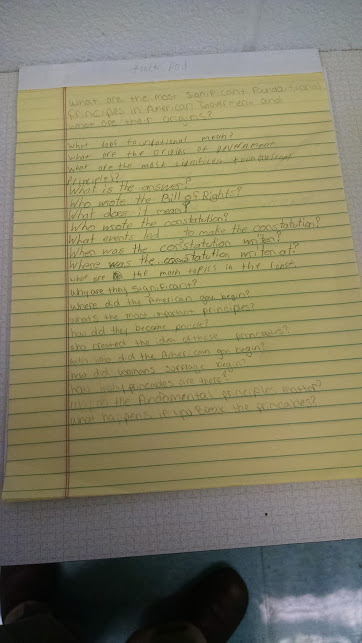 What are the most significant foundational
principles in American Government and
what are their origins?
What does foundational mean?
What are the origins of government
what are the most significan foundational
Principles?
What is the answer?
Who wrote the Bill of Rights?
What does it mean?
Who wrote the constatution?
What events led to make the constatution?
When was the constatution writen?
Where was the constatution writen at?
what are the main topics in the
Why are they significant?
Where did the American gov begin?
whats the most important principles?
how did they became
who created the idea of these principles?
who did the American gov begin?
how did womans suffrage begin?
how many princaples are there?
the fundamental principles matter?
What happens if you break the princaples?